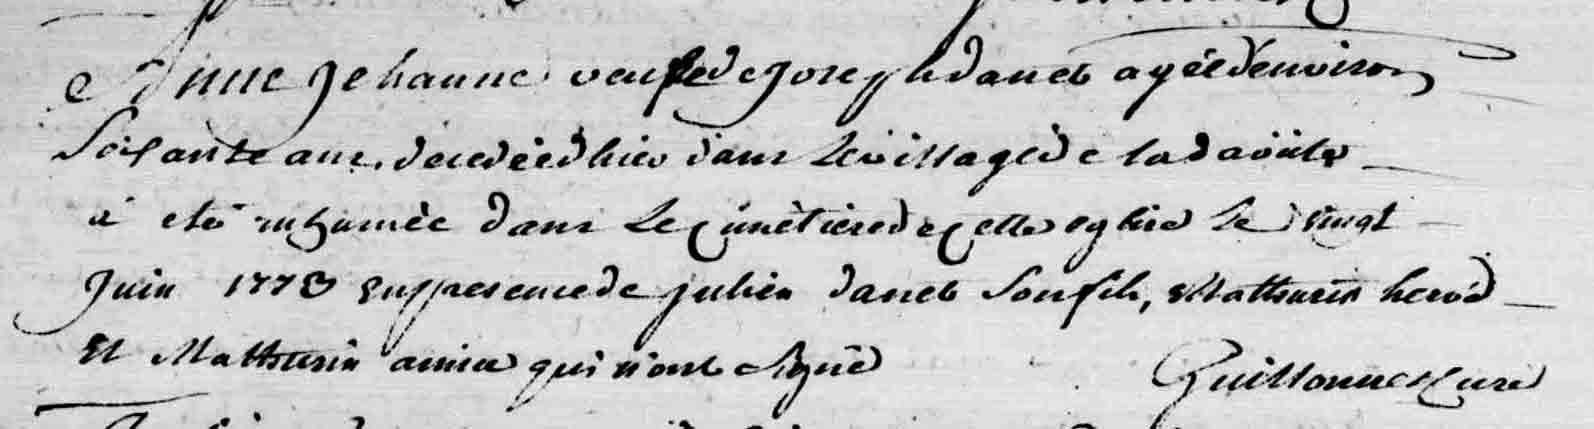 Anne Jehanne veufve de Joseph danet agéé d'environ
Soixante ans, decedéé d'hier dans Le village de la
à eté inhumèe dans Le cimètiere de cette eglise Le vingt
Juin 1773 en presence de julien danet Son fils, Mathurin hervé
Et Mathurin qui n'ont Signé
Curé